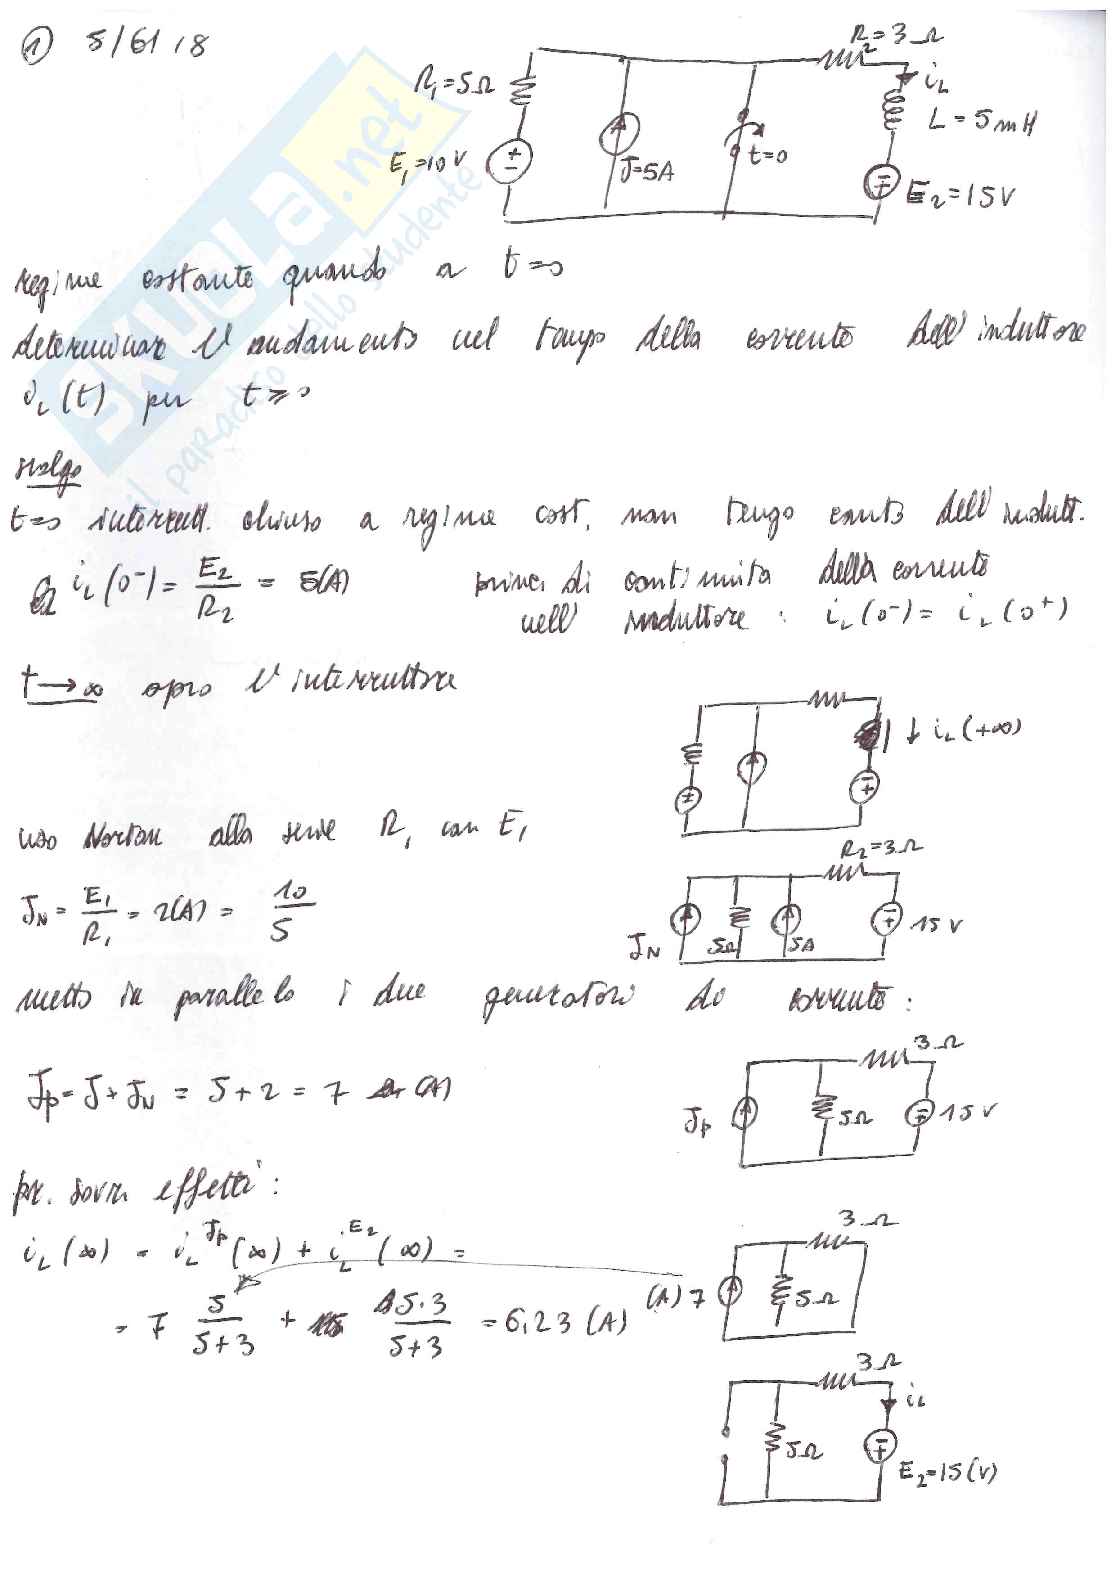 ① 5/6/18
R₁=5Ω
E₁=10V
J=5A
t=0
R₂=3Ω
iL
L=5mH
E₂=15V
regime costante quando a t=0
determinare l'andamento nel tempo della corrente dell'induttore
iL(t) per t≥0
svolgo
t=0 interrutt. chiuso a regime cost. non tengo conto dell'indutt.
iL(0⁻) = E₂/R₂ = 5(A) princ. di continuità della corrente
nell'induttore : iL(0⁻) = iL(0⁺)
t→∞ apro l'interruttore
iL(+∞)
uso Norton alla serie R₁ con E₁
JN = E₁/R₁ = 2(A) = 10/5
R₂=3Ω
JN
5Ω
5A
15V
metto in parallelo i due generatori di corrente :
Jp = J + JN = 5+2 = 7 (A)
3Ω
Jp
5Ω
15V
pr. sovr. effetti :
iL(∞) = iL^Jp(∞) + iL^E₂(∞) =
= 7 5/5+3 + 15·3/5+3 = 6,23 (A)
3Ω
(A) 7
5Ω
3Ω
iL
5Ω
E₂=15(V)
SKUOLA.net
il paradiso dello studente